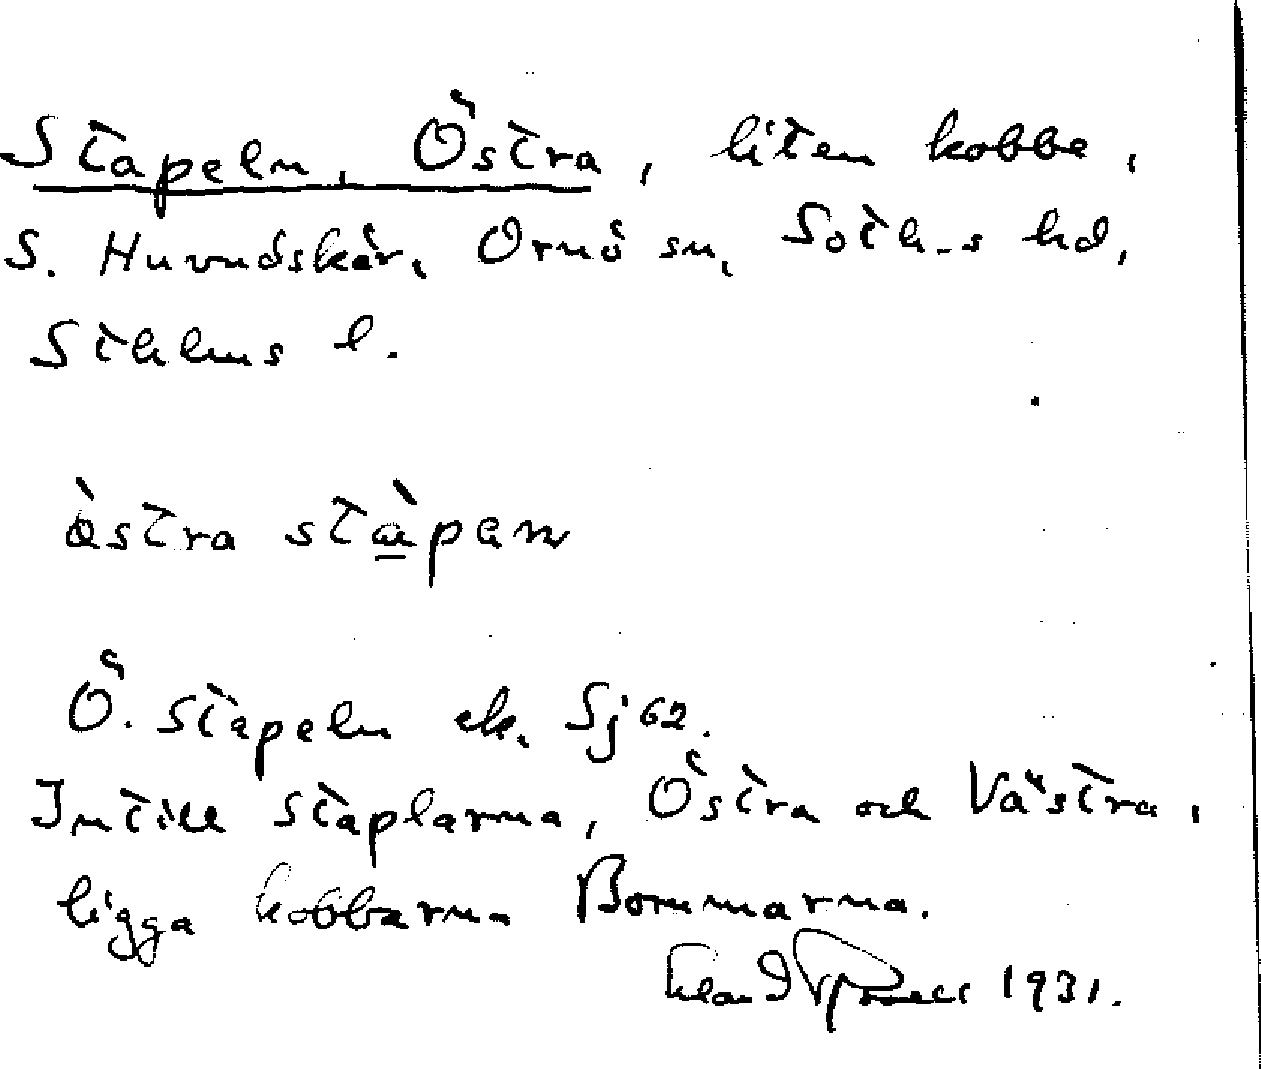 Stapeln, Östra, liten kobbe,
S. Huvudskär, Ornö sn, Soth-s hd,
Sthlms l.
àstra stàpan
Ö. Stapeln ek. Sj 62.
Intill Staplarna, Östra och Västra,
ligga kobbarna Bommarna.
1931.